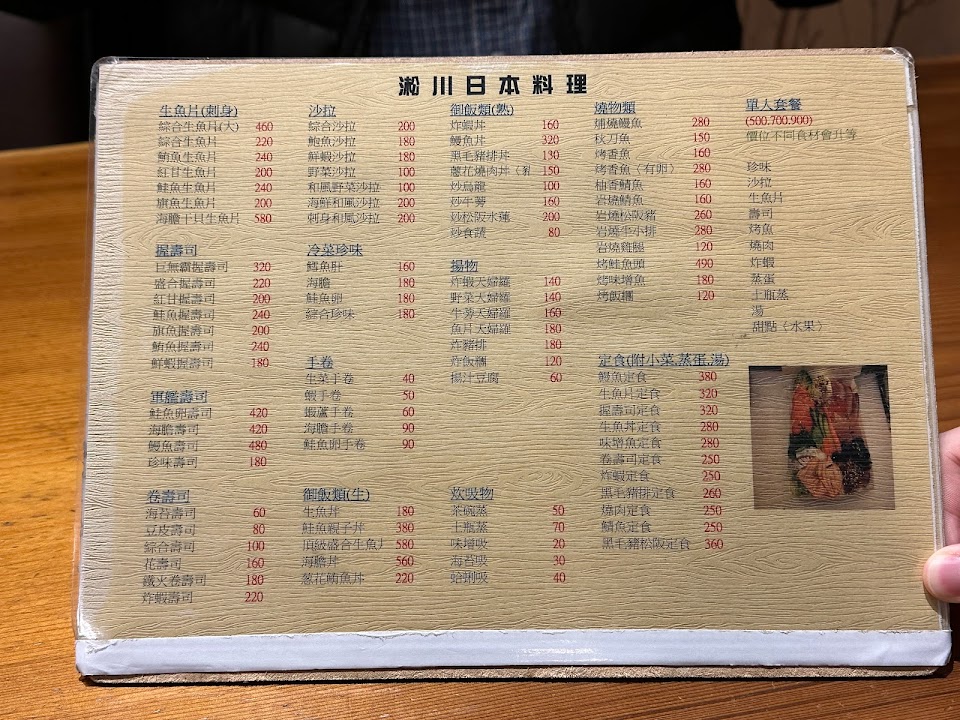 淞川日本料理
生魚片(刺身)
綜合生魚片(大) 460
綜合生魚片 220
鮪魚生魚片 240
紅甘生魚片 200
鮭魚生魚片 240
旗魚生魚片 200
海膽干貝生魚片 580
握壽司
巨無霸握壽司 320
盛合握壽司 220
紅甘握壽司 200
鮭魚握壽司 240
旗魚握壽司 200
鮪魚握壽司 240
鮮蝦握壽司 180
軍艦壽司
鮭魚卵壽司 420
海膽壽司 420
鰻魚壽司 480
珍味壽司 180
卷壽司
海苔壽司 60
豆皮壽司 80
綜合壽司 100
花壽司 160
鐵火卷壽司 180
炸蝦壽司 220
沙拉
綜合沙拉 200
鮑魚沙拉 180
鮮蝦沙拉 180
野菜沙拉 100
和風野菜沙拉 100
海鮮和風沙拉 200
刺身和風沙拉 200
冷菜珍味
鱈魚肝 160
海膽 180
鮭魚卵 180
綜合珍味 180
手卷
生菜手卷 40
蝦手卷 50
蝦蘆手卷 60
海膽手卷 90
鮭魚卵手卷 90
御飯類(生)
生魚丼 180
鮭魚親子丼 380
頂級盛合生魚丼 580
海膽丼 560
蔥花鮪魚丼 220
御飯類(熟)
炸蝦丼 160
鰻魚丼 320
黑毛豬排丼 130
蔥花燒肉丼 150
炒烏龍 100
炒牛蒡 160
炒松阪水蓮 200
炒食蔬 80
揚物
炸蝦天婦羅 140
野菜天婦羅 140
牛蒡天婦羅 160
魚片天婦羅 180
炸豬排 180
炸飯糰 120
揚汁豆腐 60
炊吸物
茶碗蒸 50
土瓶蒸 70
味增吸 20
海苔吸 30
蛤蜊吸 40
燒物類
蒲燒鰻魚 280
秋刀魚 150
烤香魚 160
烤香魚（有卵） 280
柚香鯖魚 160
岩燒鯖魚 160
岩燒松阪豬 260
岩燒牛小排 280
岩燒雞腿 120
烤鮭魚頭 490
烤味增魚 180
烤飯糰 120
定食(附小菜,蒸蛋,湯)
鰻魚定食 380
生魚片定食 320
握壽司定食 320
生魚丼定食 280
味增魚定食 280
卷壽司定食 250
炸蝦定食 250
黑毛豬排定食 260
燒肉定食 250
鯖魚定食 250
黑毛豬松阪定食 360
單人套餐
(500.700.900)
價位不同食材會升等
珍味
沙拉
生魚片
壽司
烤魚
燒肉
炸蝦
蒸蛋
土瓶蒸
湯
甜點（水果）